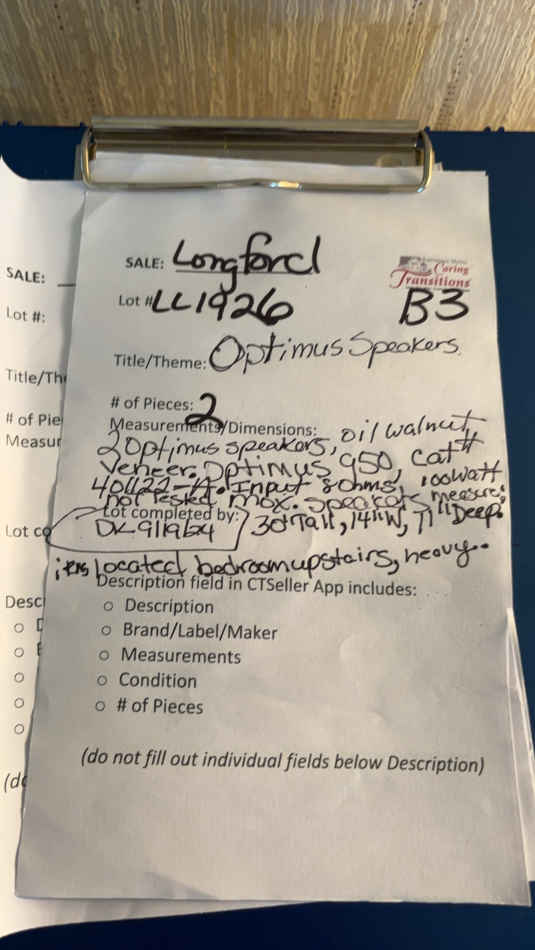 SALE: Longford
Caring
Transitions
Lot # LL1926 B3
Title/Theme: Optimus Speakers.
# of Pieces: 2
Measurements/Dimensions:
2 Optimus speakers, oil walnut,
Veneer. Optimus 950, Cat#
Input 8 ohms, 100watt
not Tested. max. speakers measure:
Lot completed by: 30"Tall, 14"W, 11"Deep.
DK
items located bedroom upstairs, heavy..
Description field in CTSeller App includes:
○ Description
○ Brand/Label/Maker
○ Measurements
○ Condition
○ # of Pieces
(do not fill out individual fields below Description)
SALE:
Lot #:
Title/Th
# of Pie
Measur
Lot co
Desc
(do